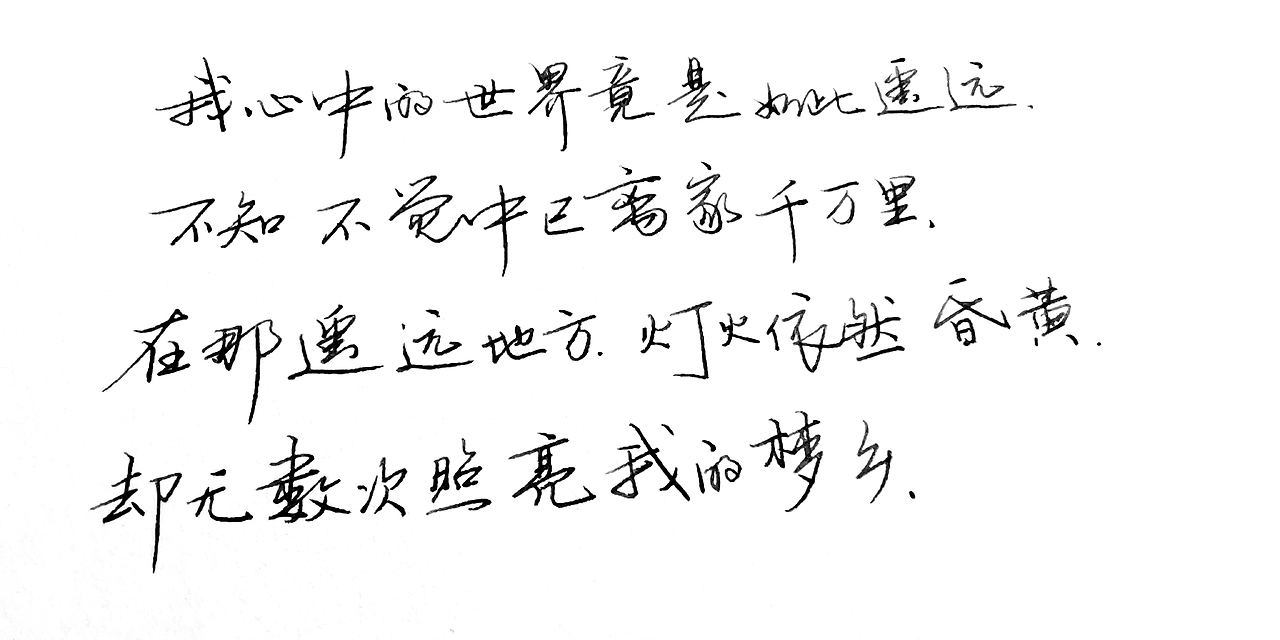 我心中的世界竟是如此遥远.
不知不觉中已离家千万里.
在那遥远地方.灯火依然昏黄.
却无数次照亮我的梦乡.